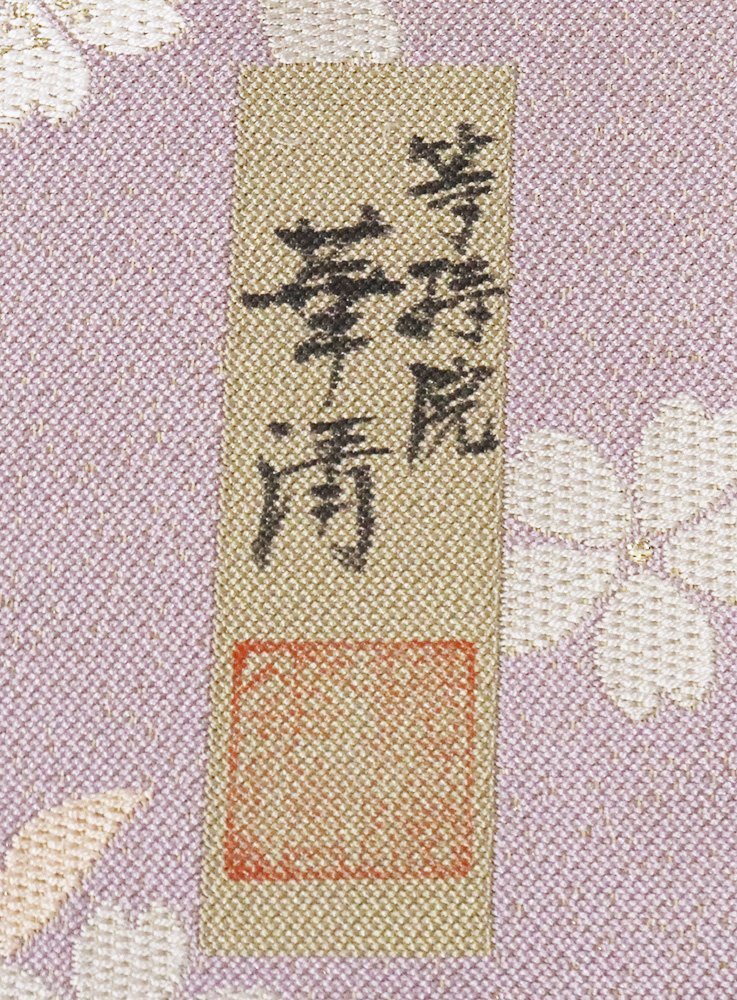 等持院
華清